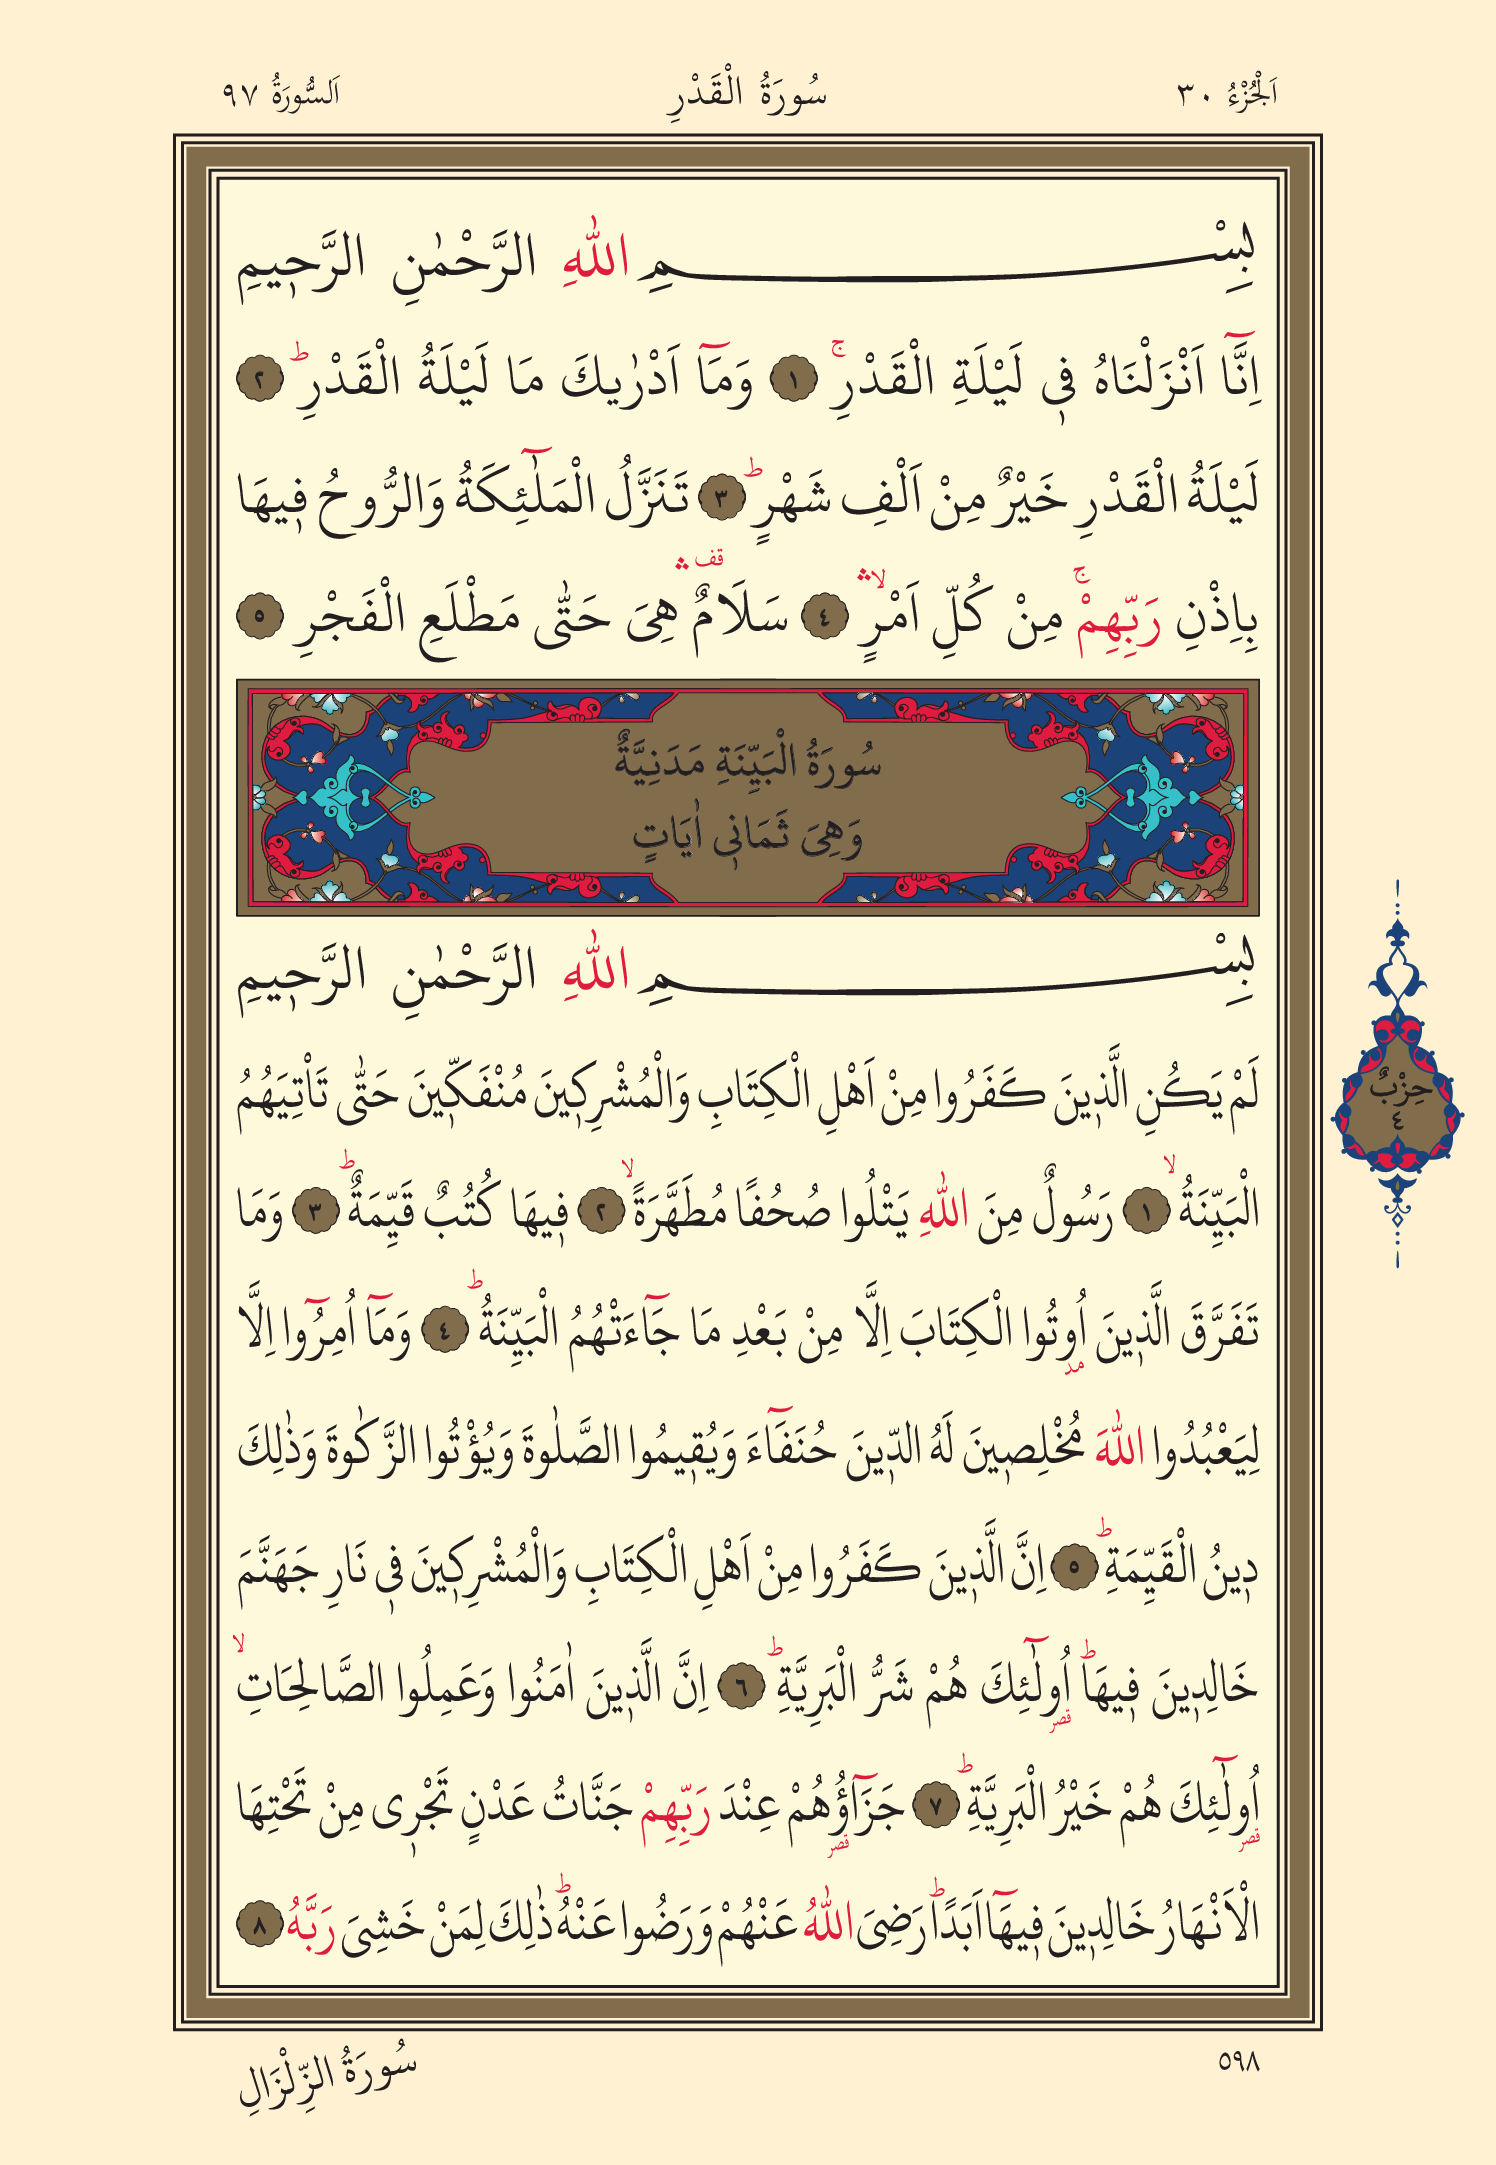 اَلْجُزْءُ ٣٠
سُورَةُ الْقَدْرِ
اَلسُّورَةُ ٩٧
بِسْمِ اللّٰهِ الرَّحْمٰنِ الرَّح۪يمِ
اِنَّٓا اَنْزَلْنَاهُ ف۪ي لَيْلَةِ الْقَدْرِۚ ١ وَمَٓا اَدْرٰيكَ مَا لَيْلَةُ الْقَدْرِۜ ٢
لَيْلَةُ الْقَدْرِ خَيْرٌ مِنْ اَلْفِ شَهْرٍۜ ٣ تَنَزَّلُ الْمَلٰٓئِكَةُ وَالرُّوحُ ف۪يهَا
بِاِذْنِ رَبِّهِمْۚ مِنْ كُلِّ اَمْرٍۙۛ ٤ سَلَامٌ۠ۛ هِيَ حَتّٰى مَطْلَعِ الْفَجْرِ ٥
سُورَةُ الْبَيِّنَةِ مَدَنِيَّةٌ
وَهِيَ ثَمَان۪ي اٰيَاتٍ
بِسْمِ اللّٰهِ الرَّحْمٰنِ الرَّح۪يمِ
لَمْ يَكُنِ الَّذ۪ينَ كَفَرُوا مِنْ اَهْلِ الْكِتَابِ وَالْمُشْرِك۪ينَ مُنْفَكّ۪ينَ حَتّٰى تَاْتِيَهُمُ
الْبَيِّنَةُۙ ١ رَسُولٌ مِنَ اللّٰهِ يَتْلُوا صُحُفًا مُطَهَّرَةًۙ ٢ ف۪يهَا كُتُبٌ قَيِّمَةٌۜ ٣ وَمَا
تَفَرَّقَ الَّذ۪ينَ اُو۫تُوا الْكِتَابَ اِلَّا مِنْ بَعْدِ مَا جَٓاءَتْهُمُ الْبَيِّنَةُۜ ٤ وَمَٓا اُمِرُٓوا اِلَّا
لِيَعْبُدُوا اللّٰهَ مُخْلِص۪ينَ لَهُ الدّ۪ينَ حُنَفَٓاءَ وَيُق۪يمُوا الصَّلٰوةَ وَيُؤْتُوا الزَّكٰوةَ وَذٰلِكَ
د۪ينُ الْقَيِّمَةِۜ ٥ اِنَّ الَّذ۪ينَ كَفَرُوا مِنْ اَهْلِ الْكِتَابِ وَالْمُشْرِك۪ينَ ف۪ي نَارِ جَهَنَّمَ
خَالِد۪ينَ ف۪يهَاۜ اُو۬لٰٓئِكَ هُمْ شَرُّ الْبَرِيَّةِۜ ٦ اِنَّ الَّذ۪ينَ اٰمَنُوا وَعَمِلُوا الصَّالِحَاتِۙ
اُو۬لٰٓئِكَ هُمْ خَيْرُ الْبَرِيَّةِۜ ٧ جَزَٓاؤُ۬هُمْ عِنْدَ رَبِّهِمْ جَنَّاتُ عَدْنٍ تَجْر۪ي مِنْ تَحْتِهَا
الْاَنْهَارُ خَالِد۪ينَ ف۪يهَٓا اَبَدًاۜ رَضِيَ اللّٰهُ عَنْهُمْ وَرَضُوا عَنْهُۜ ذٰلِكَ لِمَنْ خَشِيَ رَبَّهُ ٨
حِزْبٌ
٤
٥٩٨
سُورَةُ الزِّلْزَالِ